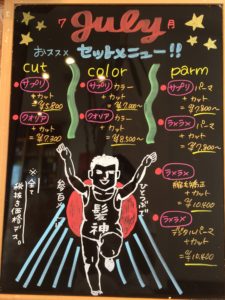 7 July 月
おススメ セットメニュー!!
cut
サプリ
+カット
=¥5,800
クオリア
+カット
=¥7,300
color
サプリ カラー
+カット
=¥7,000～
クオリア カラー
+カット
=¥8,500～
parm
サプリ パーマ
+カット
=¥7,800～
ラメラメ パーマ
+カット
=¥7,800～
ラメラメ
縮毛矯正
+カット
=¥10,400
ラメラメ
デジタルパーマ
+カット
=¥10,400
ひとつぶで
髪神
参百
※全て
税抜き価格デス。